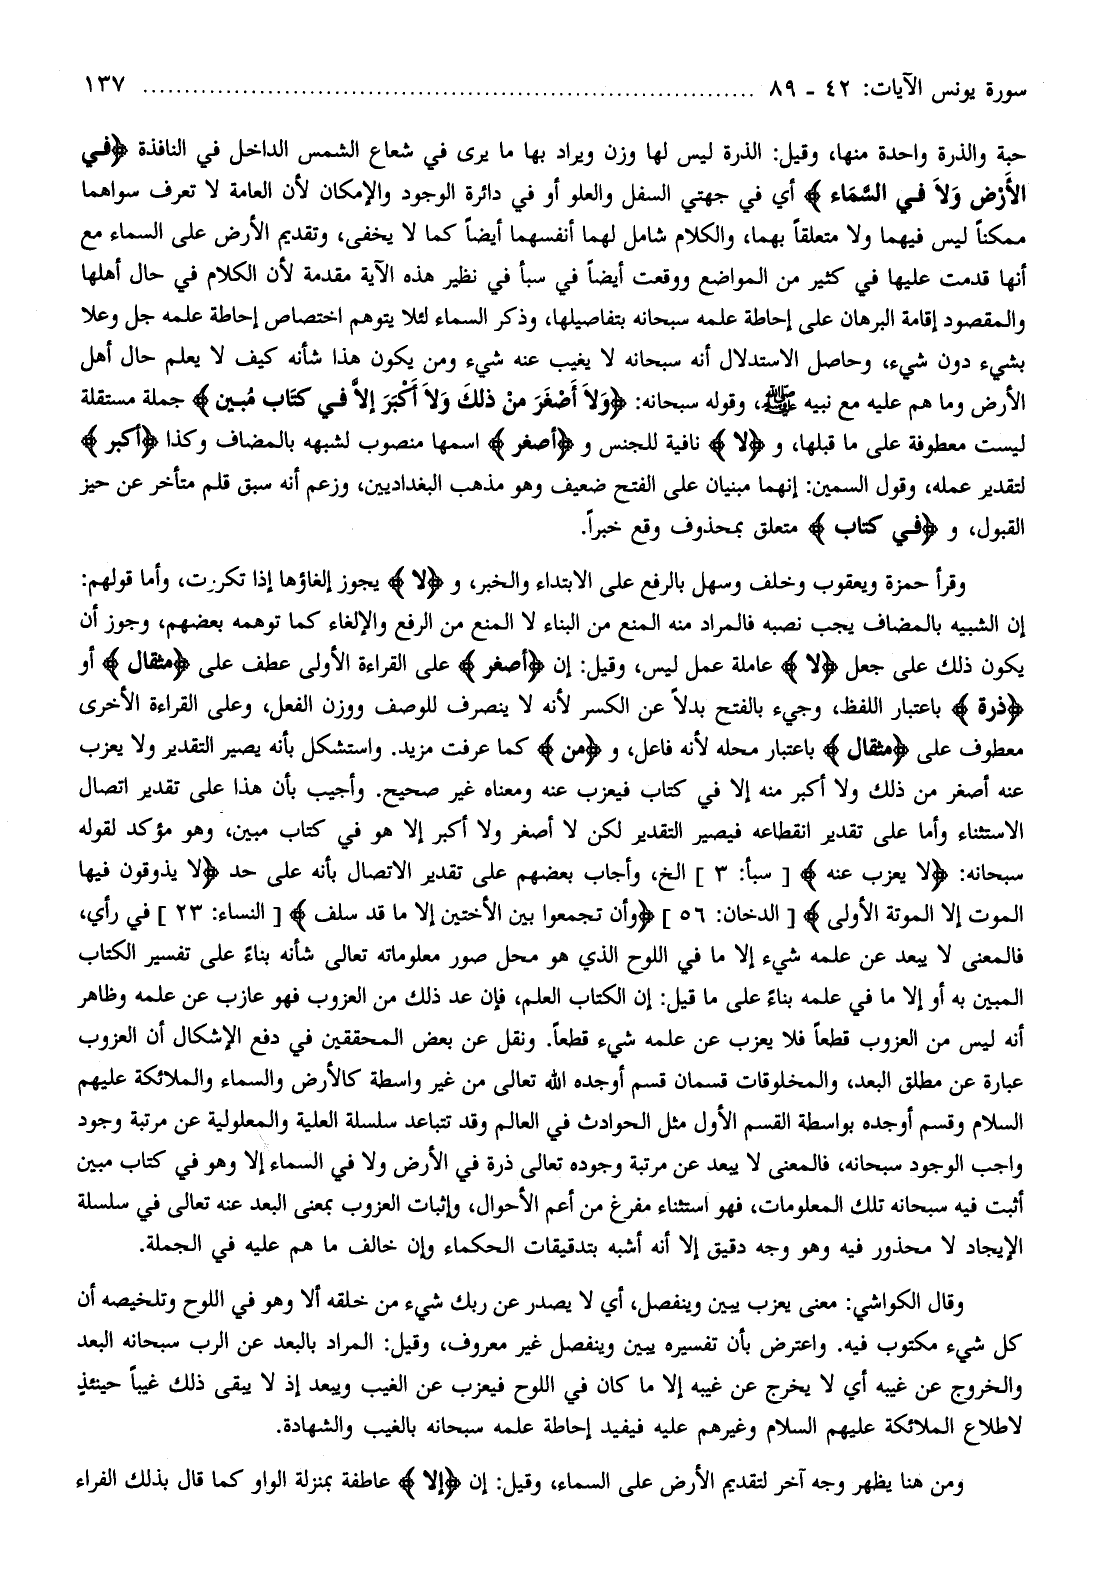 سورة يونس الآيات: ٤٢ - ٨٩ ........................................................................ ١٣٧
حبة والذرة واحدة منها، وقيل: الذرة ليس لها وزن ويراد بها ما يرى في شعاع الشمس الداخل في النافذة ﴿في
الأَرْض وَلاَ في السَّمَاء﴾ أي في جهتي السفل والعلو أو في دائرة الوجود والإمكان لأن العامة لا تعرف سواهما
ممكناً ليس فيهما ولا متعلقاً بهما، والكلام شامل لهما أنفسهما أيضاً كما لا يخفى، وتقديم الأرض على السماء مع
أنها قدمت عليها في كثير من المواضع ووقعت أيضاً في سبأ في نظير هذه الآية مقدمة لأن الكلام في حال أهلها
والمقصود إقامة البرهان على إحاطة علمه سبحانه بتفاصيلها، وذكر السماء لئلا يتوهم اختصاص إحاطة علمه جل وعلا
بشيء دون شيء، وحاصل الاستدلال أنه سبحانه لا يغيب عنه شيء ومن يكون هذا شأنه كيف لا يعلم حال أهل
الأرض وما هم عليه مع نبيه ﷺ، وقوله سبحانه: ﴿وَلاَ أَصْغَرَ منْ ذلكَ وَلاَ أَكْبَرَ إلاَّ في كتَاب مُبين﴾ جملة مستقلة
ليست معطوفة على ما قبلها، و ﴿لا﴾ نافية للجنس و ﴿أصغر﴾ اسمها منصوب لشبهه بالمضاف وكذا ﴿أكبر﴾
لتقدير عمله، وقول السمين: إنهما مبنيان على الفتح ضعيف وهو مذهب البغداديين، وزعم أنه سبق قلم متأخر عن حيز
القبول، و ﴿في كتاب﴾ متعلق بمحذوف وقع خبراً.
وقرأ حمزة ويعقوب وخلف وسهل بالرفع على الابتداء والخبر، و ﴿لا﴾ يجوز إلغاؤها إذا تكررت، وأما قولهم:
إن الشبيه بالمضاف يجب نصبه فالمراد منه المنع من البناء لا المنع من الرفع والإلغاء كما توهمه بعضهم، وجوز أن
يكون ذلك على جعل ﴿لا﴾ عاملة عمل ليس، وقيل: إن ﴿أصغر﴾ على القراءة الأولى عطف على ﴿مثقال﴾ أو
﴿ذرة﴾ باعتبار اللفظ، وجيء بالفتح بدلاً عن الكسر لأنه لا ينصرف للوصف ووزن الفعل، وعلى القراءة الأخرى
معطوف على ﴿مثقال﴾ باعتبار محله لأنه فاعل، و ﴿من﴾ كما عرفت مزيد. واستشكل بأنه يصير التقدير ولا يعزب
عنه أصغر من ذلك ولا أكبر منه إلا في كتاب فيعزب عنه ومعناه غير صحيح. وأجيب بأن هذا على تقدير اتصال
الاستثناء وأما على تقدير انقطاعه فيصير التقدير لكن لا أصغر ولا أكبر إلا هو في كتاب مبين، وهو مؤكد لقوله
سبحانه: ﴿لا يعزب عنه﴾ [ سبأ: ٣ ] الخ، وأجاب بعضهم على تقدير الاتصال بأنه على حد ﴿لا يذوقون فيها
الموت إلا الموتة الأولى﴾ [ الدخان: ٥٦ ] ﴿وأن تجمعوا بين الأختين إلا ما قد سلف﴾ [ النساء: ٢٣ ] في رأي،
فالمعنى لا يبعد عن علمه شيء إلا ما في اللوح الذي هو محل صور معلوماته تعالى شأنه بناءً على تفسير الكتاب
المبين به أو إلا ما في علمه بناءً على ما قيل: إن الكتاب العلم، فإن عد ذلك من العزوب فهو عازب عن علمه وظاهر
أنه ليس من العزوب قطعاً فلا يعزب عن علمه شيء قطعاً. ونقل عن بعض المحققين في دفع الإشكال أن العزوب
عبارة عن مطلق البعد، والمخلوقات قسمان قسم أوجده الله تعالى من غير واسطة كالأرض والسماء والملائكة عليهم
السلام وقسم أوجده بواسطة القسم الأول مثل الحوادث في العالم وقد تتباعد سلسلة العلية والمعلولية عن مرتبة وجود
واجب الوجود سبحانه، فالمعنى لا يبعد عن مرتبة وجوده تعالى ذرة في الأرض ولا في السماء إلا وهو في كتاب مبين
أثبت فيه سبحانه تلك المعلومات، فهو استثناء مفرغ من أعم الأحوال، وإثبات العزوب بمعنى البعد عنه تعالى في سلسلة
الإيجاد لا محذور فيه وهو وجه دقيق إلا أنه أشبه بتدقيقات الحكماء وإن خالف ما هم عليه في الجملة.
وقال الكواشي: معنى يعزب يبين وينفصل، أي لا يصدر عن ربك شيء من خلقه ألا وهو في اللوح وتلخيصه أن
كل شيء مكتوب فيه. واعترض بأن تفسيره يبين وينفصل غير معروف، وقيل: المراد بالبعد عن الرب سبحانه البعد
والخروج عن غيبه أي لا يخرج عن غيبه إلا ما كان في اللوح فيعزب عن الغيب ويبعد إذ لا يبقى ذلك غيباً حينئذٍ
لاطلاع الملائكة عليهم السلام وغيرهم عليه فيفيد إحاطة علمه سبحانه بالغيب والشهادة.
ومن هنا يظهر وجه آخر لتقديم الأرض على السماء، وقيل: إن ﴿إلا﴾ عاطفة بمنزلة الواو كما قال بذلك الفراء